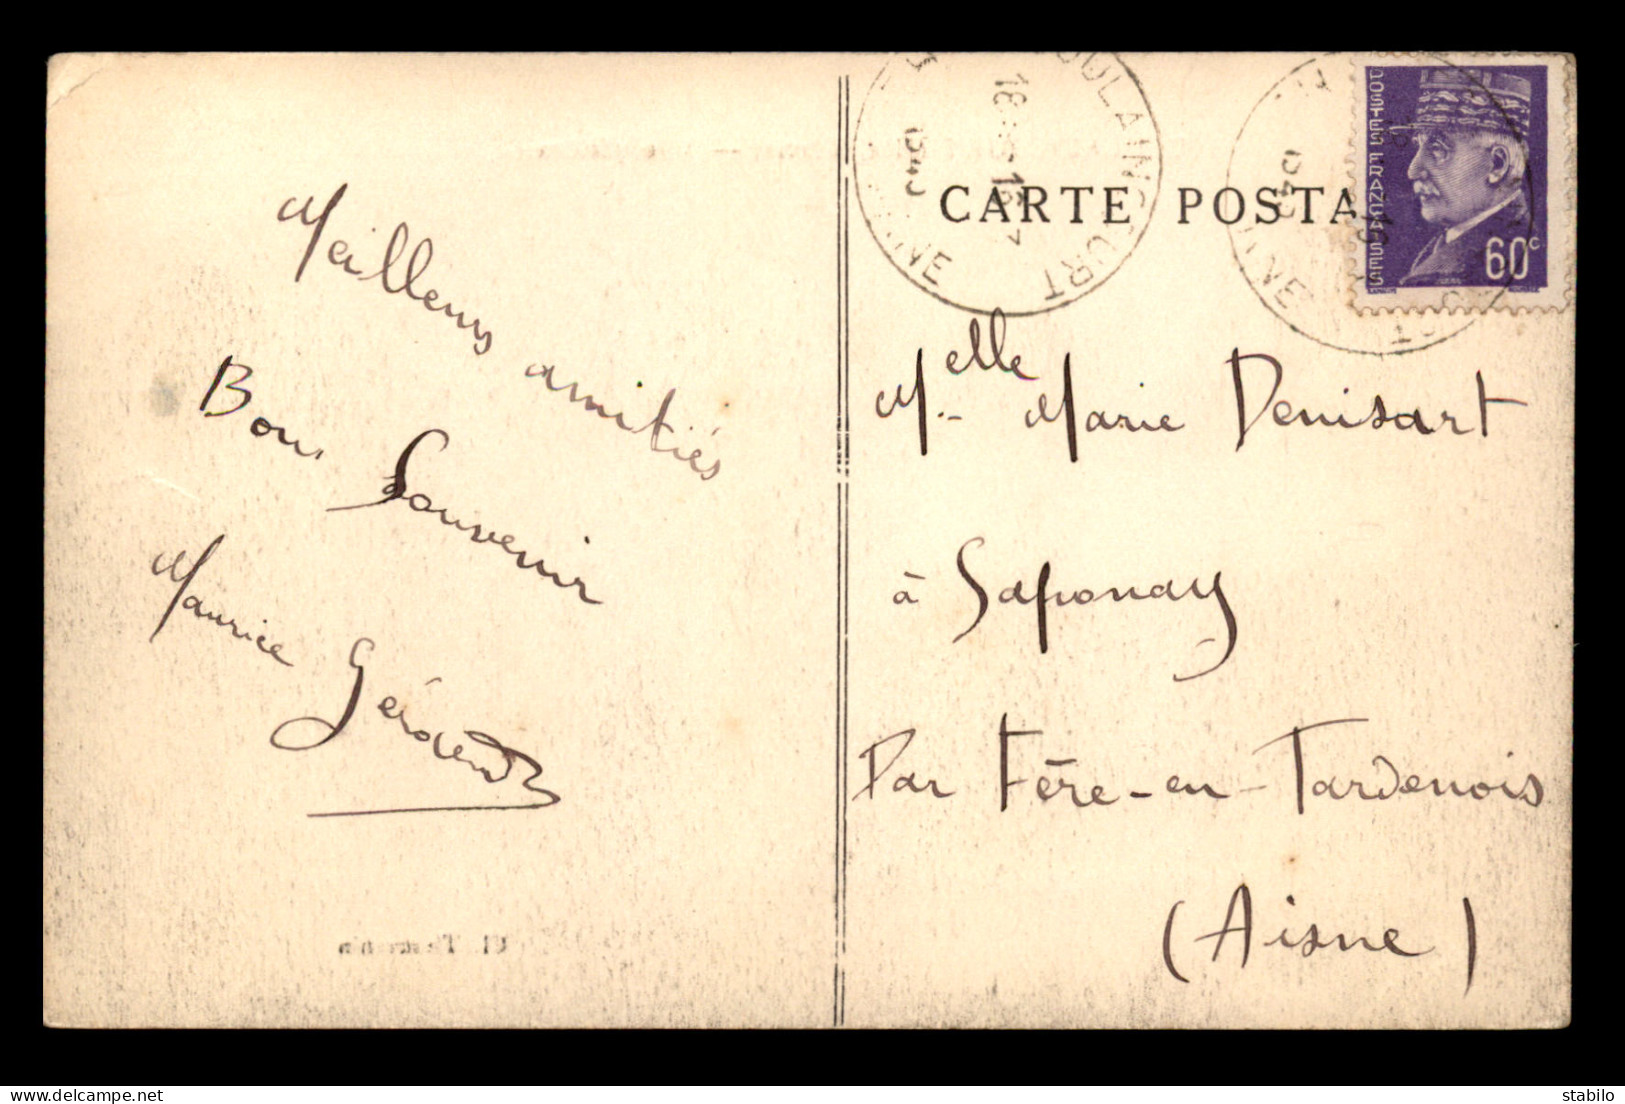 CARTE POSTA
POSTES FRANÇAISES
60c
Meilleurs amitiés
Bon Souvenir
Maurice
Melle Marie Denisart
à Saponay
Par Fère-en-Tardenois
(Aisne)
delcampe.net
stabilo